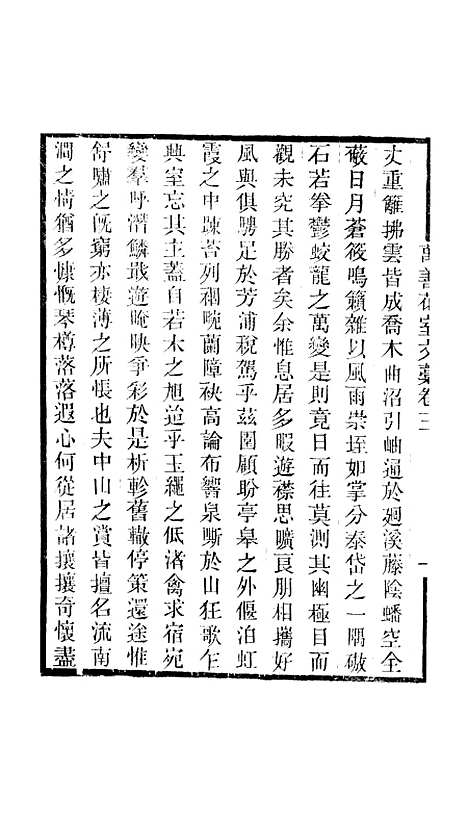 萬善花室文藁卷三
一
丈重籬拂雲皆成喬木曲沼引岫逼於廻溪藤陰蟠空全
蔽日月蒼筱鳴籟雜以風雨崇垤如掌分泰岱之一隅礅
石若拳鬱蛟龍之萬變是則竟日而往莫測其幽極目而
觀未究其勝者矣余惟息居多暇遊襟思曠良朋相攜好
風與俱騁足於芳浦稅駕乎茲園顧盼亭皋之外偃泊虹
霞之中疎苔列裀晥蘭障袂高論布響泉嘶於山狂歌乍
興室忘其主蓋自若木之旭迨乎玉繩之低渚禽求宿宛
變羣呼潛鱗戢遊晻映爭彩於是析軫舊轍停策還途惟
舒嘯之旣窮亦棲薄之所悵也夫中山之賞皆擅名流南
澗之情猶多慷慨琴樽落落遐心何從居諸攘攘奇懷盡